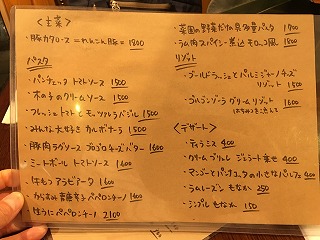 ＜主菜＞
・豚カタロース =れんこん豚= 1800
パスタ
・パンチェッタ トマトソース 1500
・木の子のクリームソース 1500
・フレッシュトマトとモッツァレラバジル 1500
・みんな大好き カルボナーラ 1500
・豚肉ラグソース ゴルゴンゾーラチーズバター 1600
・ミートボール トマトソース 1600
・牛もつ アラビアータ 1600
・からすみ 青唐辛子 ペペロンチーノ 1600
・生うに ペペロンチーノ 2100
・菜園の野菜だけの具沢山パスタ 1700
・ラム肉 スパイシー煮込 モロッコ風 1800
リゾット
・ゴールドラッシュとパルミジャーノチーズ
リゾット 1500
・ゴルゴンゾーラ クリームリゾット 1600
(はちみつをそえて)
＜デザート＞
・ティラミス 400
・クリームブリュレ ジェラート乗せ 400
・マンゴーとパンナコッタの小さなパルフェ 400
・ラムレーズン もなか 250
・シンプル もなか 150